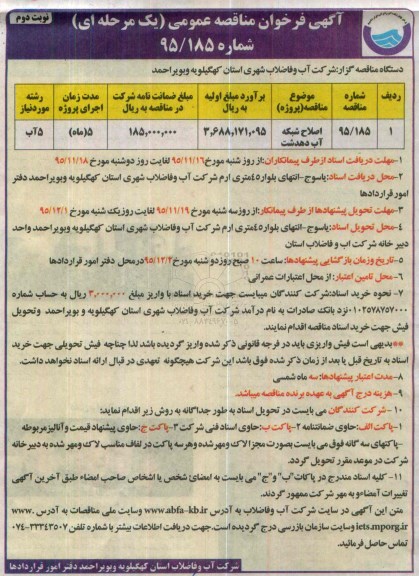 نوبت دوم
آگهی فرخوان مناقصه عمومی (یک مرحله ای)
شماره ۹۵/۱۸۵
دستگاه مناقصه گزار:شرکت آب وفاضلاب شهری استان کهگیلویه وبویراحمد
ردیف شماره مناقصه موضوع مناقصه(پروژه) برآورد مبلغ اولیه به ریال مبلغ ضمانت نامه شرکت در مناقصه به ریال مدت زمان اجرای پروژه رشته موردنیاز
۱ ۹۵/۱۸۵ اصلاح شبکه آب دهدشت ۳,۶۸۸,۱۷۱,۰۹۵ ۱۸۵,۰۰۰,۰۰۰ ۵(ماه) ۵آب
۱-مهلت دریافت اسناد ازطرف پیمانکاران:از روز شنبه مورخ ۹۵/۱۱/۱۶ لغایت روز دوشنبه مورخ ۹۵/۱۱/۱۸
۲-محل دریافت اسناد:یاسوج-انتهای بلوار۴۵متری ارم شرکت آب وفاضلاب شهری استان کهگیلویه وبویراحمد دفتر
امور قراردادها
۳-مهلت تحویل پیشنهادها از طرف پیمانکار:از روزسه شنبه مورخ ۹۵/۱۱/۱۹ لغایت روزیک شنبه مورخ ۹۵/۱۲/۱
۴-محل تحویل اسناد:یاسوج-انتهای بلوار۴۵متری ارم شرکت آب وفاضلاب شهری استان کهگیلویه وبویراحمد واحد
دبیر خانه شرکت اب و فاضلاب استان
۵-تاریخ وزمان بازگشایی پیشنهادها: ساعت ۱۰ صبح روزدو شنبه مورخ ۹۵/۱۲/۲درمحل دفتر امور قراردادها
۶-محل تامین اعتبار: از محل اعتبارات عمرانی
۷- نحوه خرید اسناد:شرکت کنندگان میبایست جهت خرید اسناد با واریز مبلغ ۳,۰۰۰,۰۰۰ ریال به حساب شماره
۰۱۰۲۵۷۸۷۵۷۰۰۰نزد بانک صادرات به نام درآمد شرکت آب وفاضلاب شهری استان کهگیلویه و بویراحمد وتحویل
فیش جهت خرید اسناد مناقصه اقدام نمایند.
**بدیهی است فیش واریزی باید در فرجه قانونی ذکر شده واریز گردیده باشد لذا چنانچه فیش تحویلی جهت خرید
اسناد به تاریخ قبل یا بعد از زمان ذکر شده فوق باشد این شرکت هیچگونه تعهدی در قبال ارائه اسناد نخواهد داشت.
۸-مدت اعتبار پیشنهادها: سه ماه شمسی
۹- هزینه درج آگهی به عهده برنده مناقصه میباشد.
۱۰-شرکت کنندگان می بایست در تحویل اسناد به طور جداگانه به روش زیر اقدام نماید:
۱-پاکت الف:حاوی ضمانتنامه ۲-پاکت ب:حاوی اسناد فنی شرکت ۳-پاکت ج: حاوی پیشنهاد قیمت وآنالیزمربوطه
-پاکتهای سه گانه فوق می بایست بصورت مجزا لاک ومهرشده وهرسه پاکت در لفاف مناسب لاک ومهر شده به دبیرخانه
شرکت در موعد مقرر تحویل گردد.
۱۱- کلیه اسناد مندرج در پاکات"ب" و"ج" می بایست به امضائ شخص یا اشخاص صاحب امضاء طبق آخرین آگهی
تغییرات امضاءو به مهر شرکت ممهور گردند.
متن این آگهی در سایت شرکت آب وفاضلاب به آدرس www.abfa-kb.ir وسایت ملی مناقصات به آدرس www.
iets.mporg.ir وسایت سازمان بازرسی درج گردیده است.جهت دریافت اطلاعات بیشتر با شماره تلفن ۳۳۳۴۳۵۰۷-۰۷۴
تماس حاصل فرمائید.
شرکت آب وفاضلاب استان کهگیلویه وبویراحمد دفتر امور قراردادها